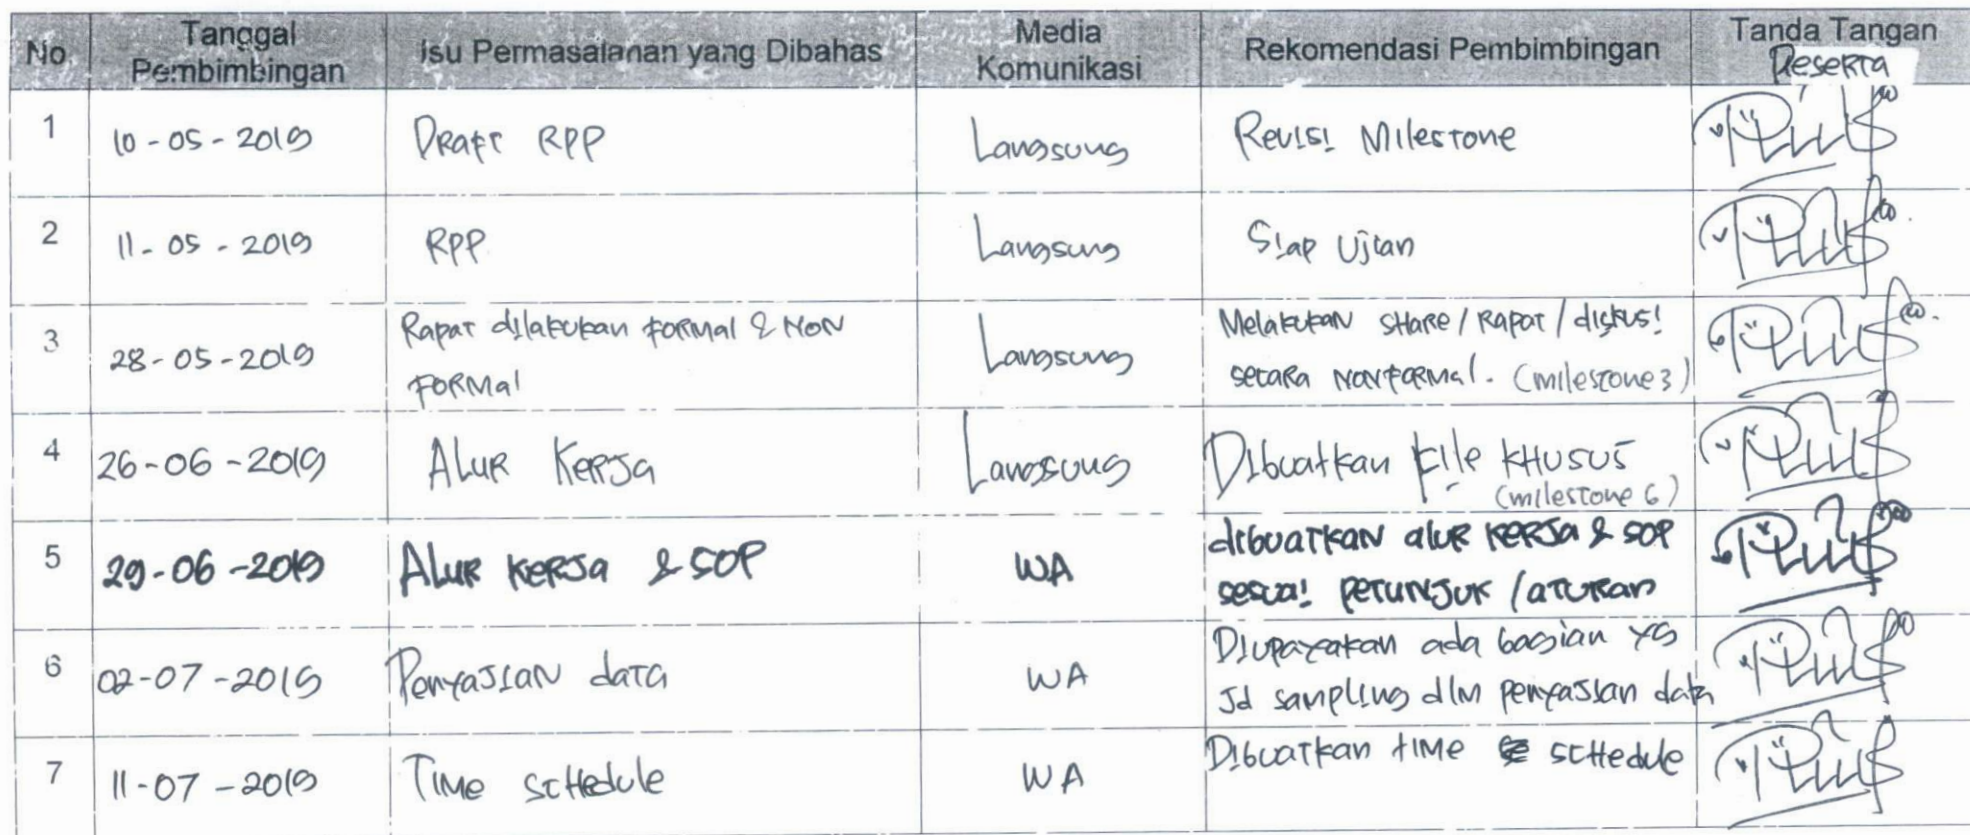 No Tanggal Pembimbingan Isu Permasalahan yang Dibahas Media Komunikasi Rekomendasi Pembimbingan Tanda Tangan Peserta
1 10-05-2019 Draft RPP Langsung Revisi Milestone
2 11-05-2019 RPP Langsung Siap Ujian
3 28-05-2019 Rapat dilakukan formal & non formal Langsung Melakukan share/rapat/diskusi secara nonformal. (milestone 3)
4 26-06-2019 Alur Kerja Langsung Dibuatkan file khusus (milestone 6)
5 29-06-2019 Alur kerja & SOP WA dibuatkan alur kerja & SOP sesuai petunjuk/aturan
6 02-07-2019 Penyajian data WA Diupayakan ada bagian yg jd sampling dlm penyajian data
7 11-07-2019 Time schedule WA Dibuatkan time schedule